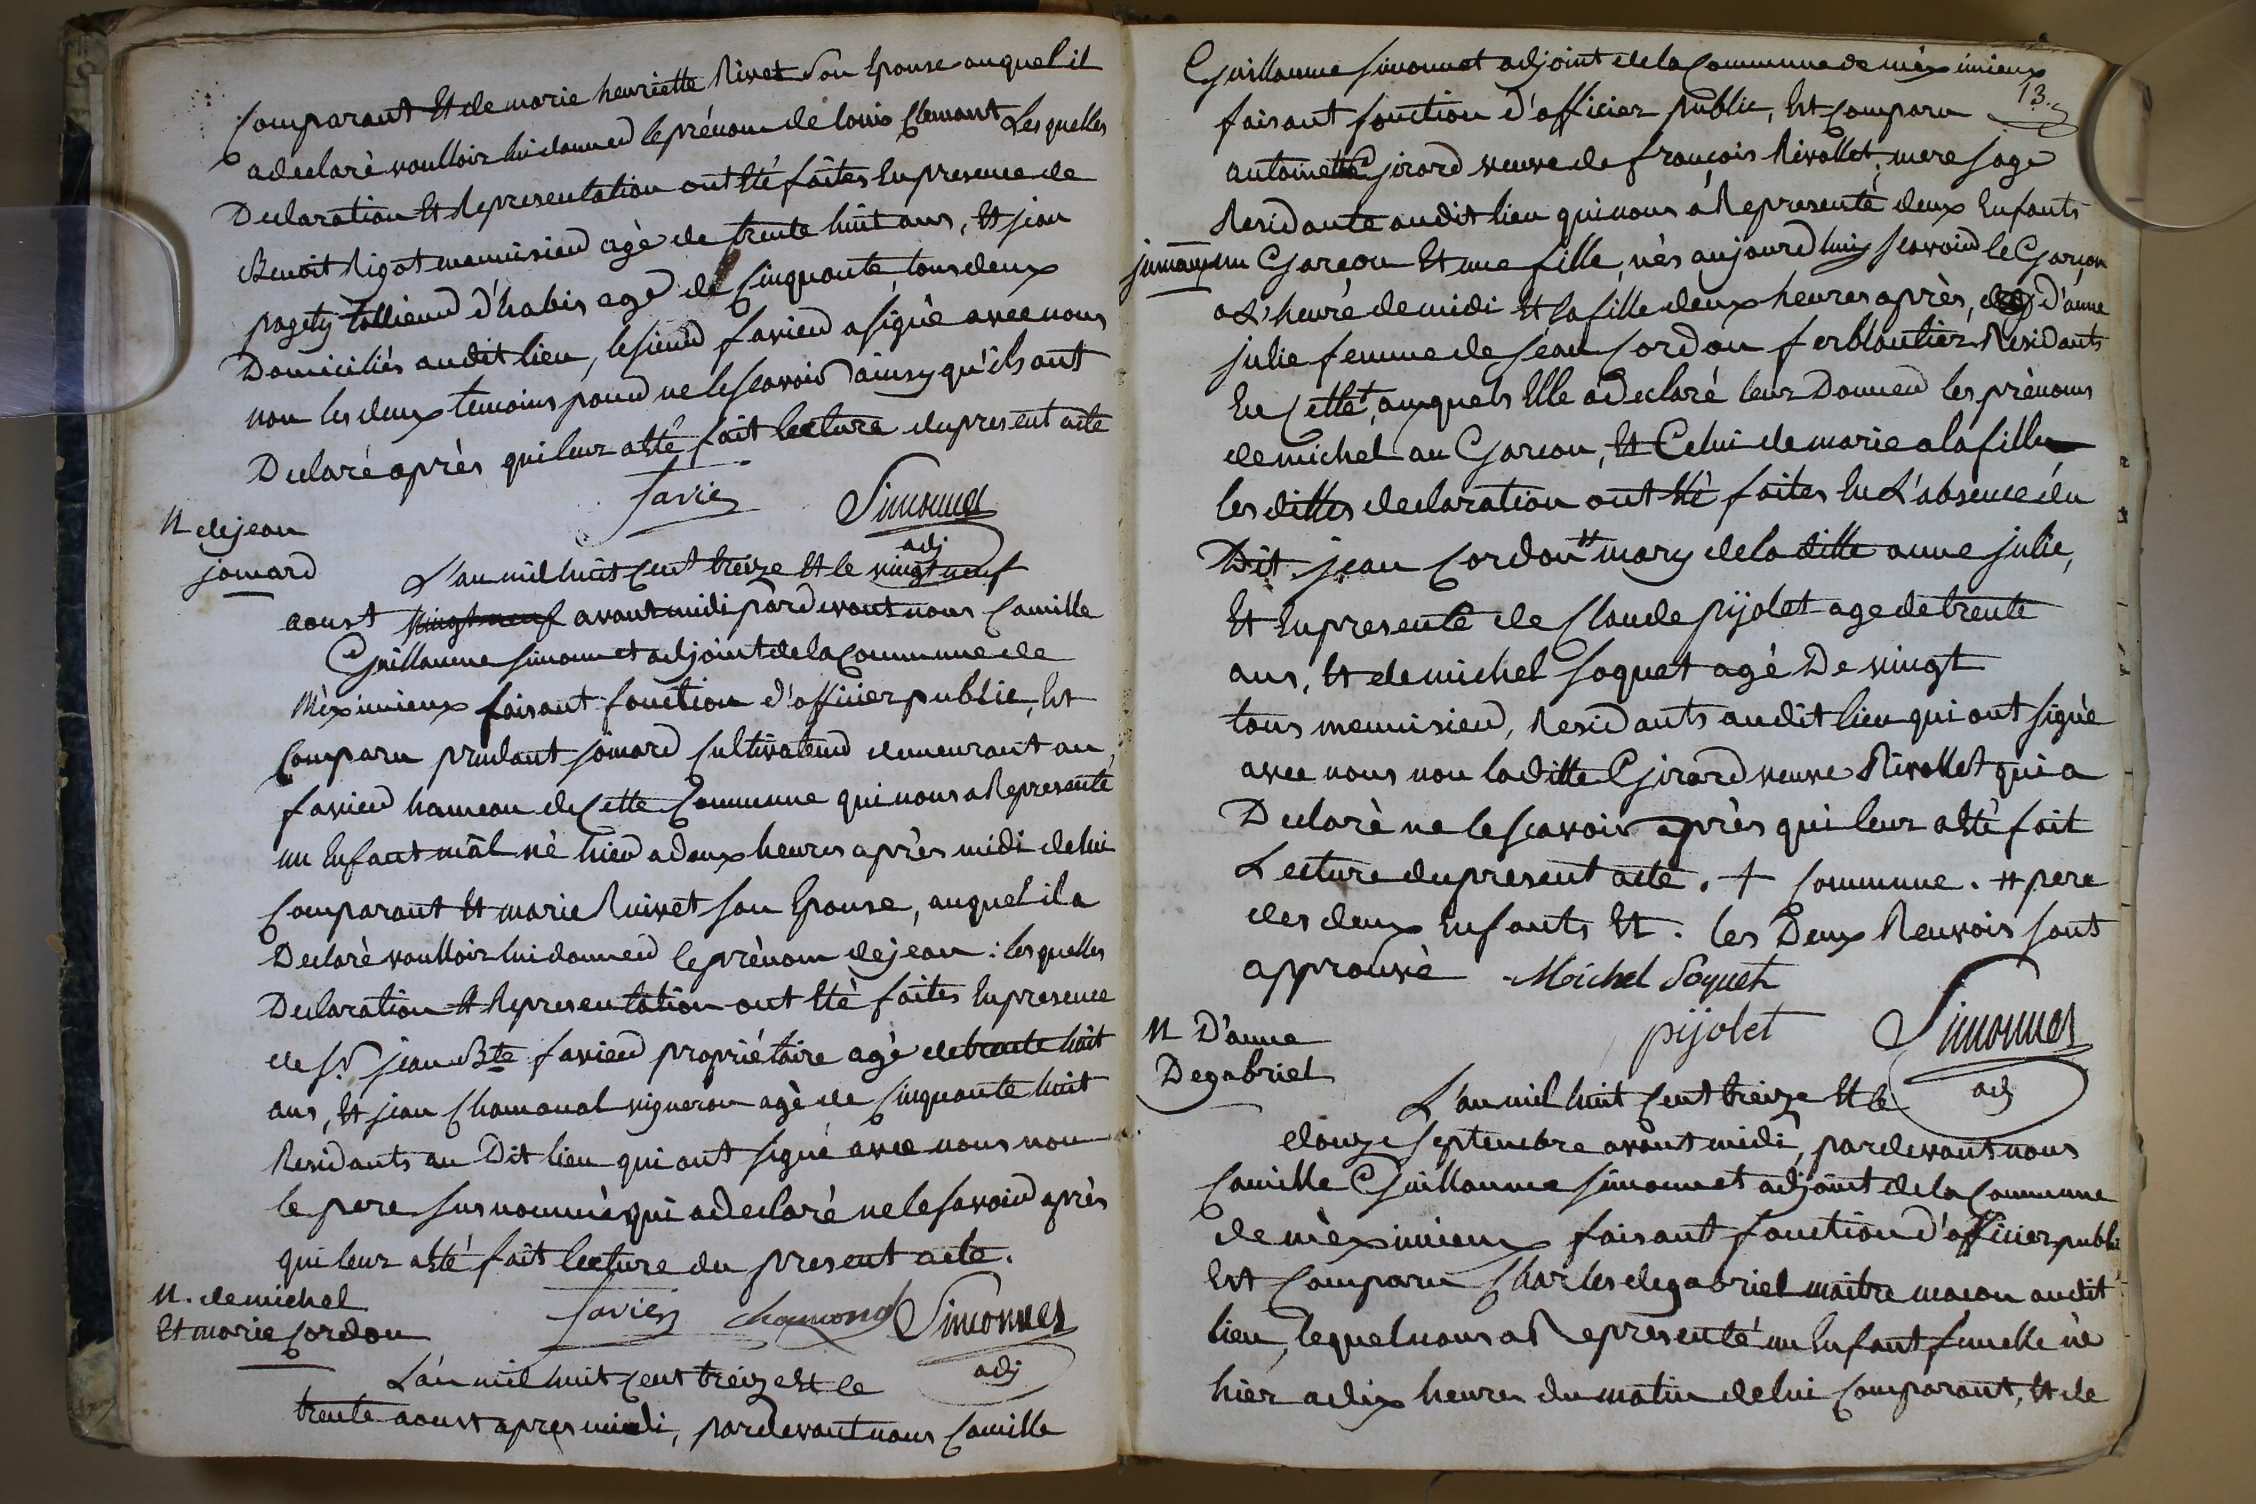 Comparant Et de marie henriette Rivet Son Epouse auquel il
a declaré voulloir lui donner le prénom de louis Clemant Lesquelles
Declaration Et Representation ont Eté faites En presence de
Benoit Rigot menuisier agé de trente huit ans, Et jean
pagety tallieur d'habis agé de Cinquante, tous deux
Domiciliés au dit lieu, le sieur favier a signé avec nous
non les deux temoins pour ne le scavoir ainsy qu'ils ont
Declaré après qui leur a Eté fait lecture du present acte
favier Simonnet
adj
N de jean
jomard
L'an mil huit Cent treize Et le vingt neuf
aoust vingt neuf avant midi pardevant nous Camille
Guillaume Simonnet adjoint de la Commune de
Méximieux faisant fonction d'officier public, Est
Comparu prudant jomard Cultivateur demeurant au
favier hameau de Cette Commune qui nous a Representé
un Enfant mâl né hier a deux heures après midi de lui
Comparant Et marie Ruivet son Epouse, auquel il a
Declaré voulloir lui donner le prénom de jean : lesquelles
Declaration Et Representation ont Eté faites En presence
de sr jean Bte favier propriétaire agé de trente huit
ans, Et jean Chamonal vigneron agé de Cinquante huit
Residants au Dit lieu qui ont signé avec nous non
le pere sus nommé qui a declaré ne le savoir après
qui leur a Eté fait lecture du present acte.
favier chamonal Simonnet
adj
N. de michel
Et marie Cordon
L'an mil huit Cent treize Et le
trente aoust apres midi, pardevant nous Camille
13.
Guillaume Simonnet adjoint de la Commune de méximieux
faisant fonction d'officier public, Est Comparu
antoinette Girard veuve de françois Rivollet, mere sage
Residante au dit lieu qui nous a Representé deux Enfants
jumaux un Garcon Et une fille, nés aujourd'huy scavoir le Garcon
a L'heure de midi Et la fille deux heures après, D'anne
julie femme de jean Cordon ferblantier Residants
En Cette + auxquels Elle a declaré leur Donner les prénoms
de michel au Garcon, Et Celui de marie a la fille
les dittes declaration ont Eté faites En L'absence du
Dit jean Cordon # mary de la ditte anne julie,
Et En presente de Claude pijolet agé de trente
ans, Et de michel soquet agé De vingt
tous menuisier, Residants au dit lieu qui ont signé
avec nous non la ditte Girard veuve Rivollet qui a
Declaré ne le scavoir après qui leur a Eté fait
Lecture du present acte. + Commune. # pere
des deux Enfants Et. les Deux Renvois sont
approuvé Michel Soquet
pijolet Simonnet
adj
N D'anne
Degabriel
L'an mil huit Cent treize Et le
douze septembre avant midi, pardevant nous
Camille Guillaume Simonnet adjoint de la Commune
de méximieux faisant fonction d'officier public
Est Comparu Charles degabriel maitre macon au dit
lieu, lequel nous a Representé un Enfant femelle né
hier a dix heures du matin de lui Comparant, Et de